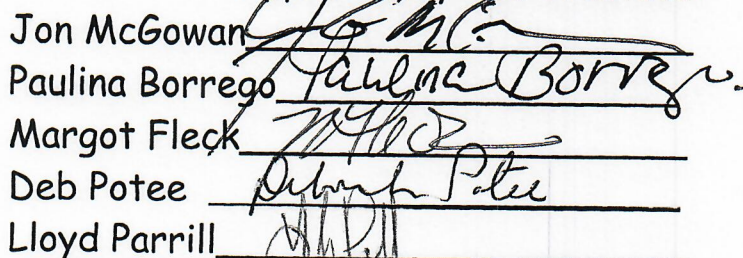 Jon McGowan Jon McG
Paulina Borrego Paulina Borrego
Margot Fleck M Fleck
Deb Potee Deborah Potee
Lloyd Parrill